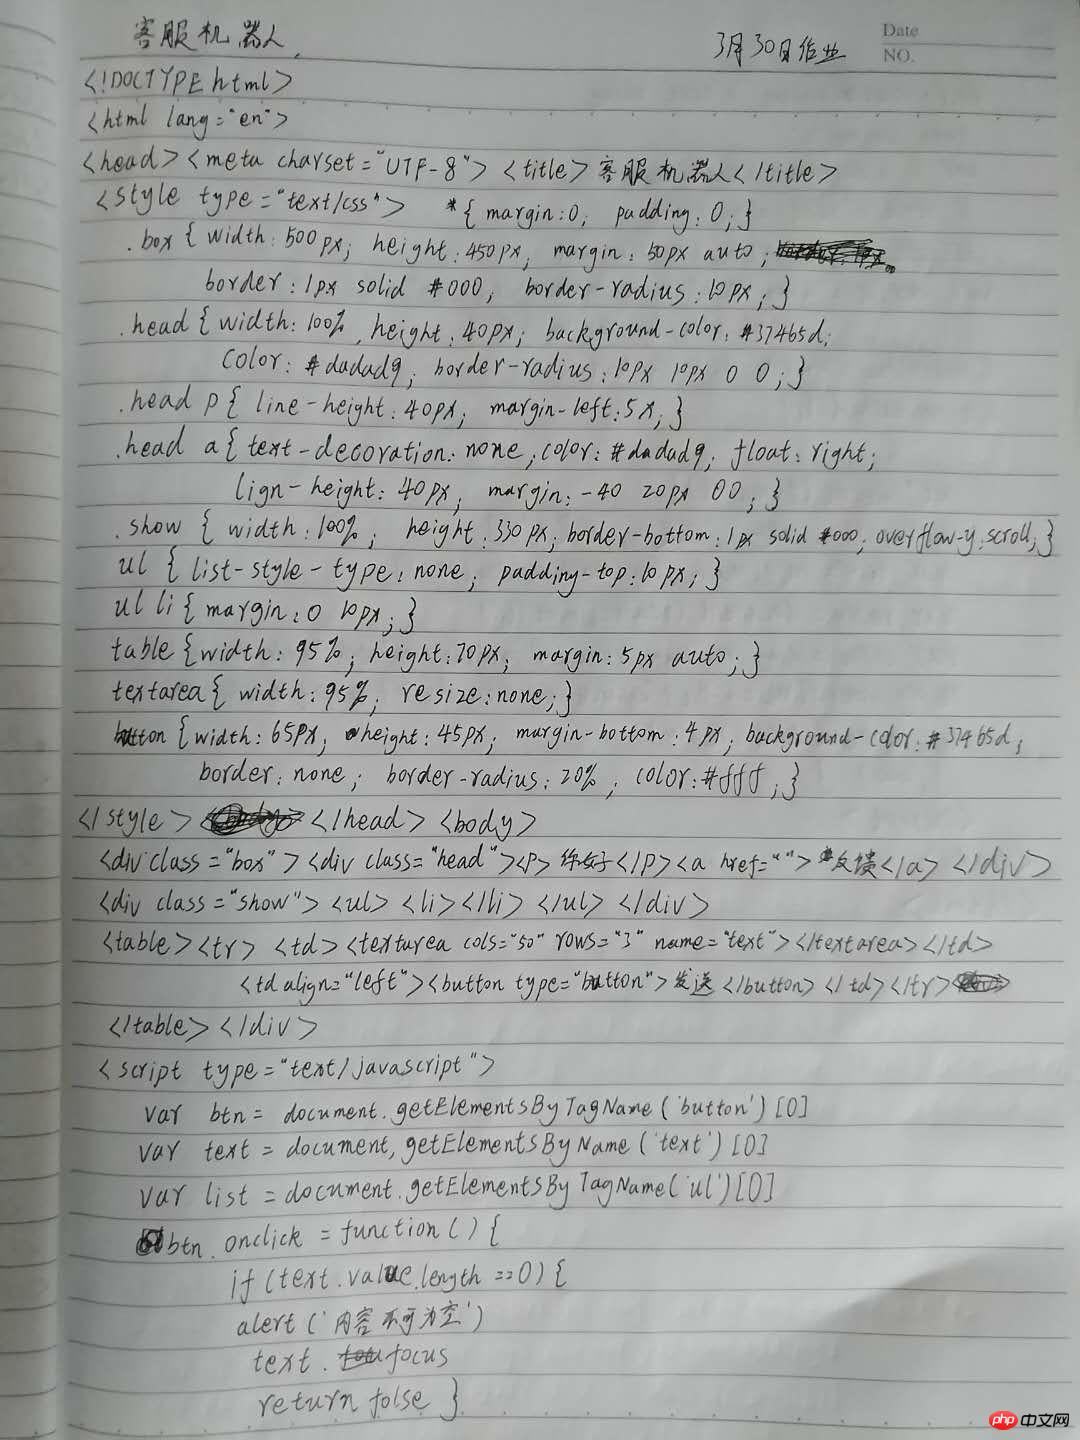 客服机器人
3月30日作业
Date
NO.
<!DOCTYPE html>
<html lang="en">
<head><meta charset="UTF-8"> <title>客服机器人</title>
<style type="text/css"> *{ margin:0; padding:0;}
.box{ width:500px; height:450px; margin:50px auto;
border:1px solid #000; border-radius:10px;}
.head{width:100%, height:40px; background-color:#37465d;
color:#dadad9; border-radius:10px 10px 0 0;}
.head p{ line-height:40px; margin-left:5x;}
.head a{ text-decoration:none; color:#dadad9; float:right;
lign-height:40px; margin:-40 20px 00;}
.show { width:100%; height:330px; border-bottom:1px solid #000; overflow-y:scroll;}
ul {list-style-type:none; padding-top:10px;}
ul li{margin:0 10px;}
table{width:95%; height:70px; margin:5px auto;}
textarea{width:95%; resize:none;}
button{width:65px; height:45px; margin-bottom:4px; background-color:#37465d;
border:none; border-radius:20%; color:#fff;}
</style> </head> <body>
<div class="box"><div class="head"><p>你好</p><a href="">反馈</a> </div>
<div class="show"> <ul> <li></li> </ul> </div>
<table><tr> <td><textarea cols="50" rows="3" name="text"></textarea></td>
<td align="left"><button type="button">发送</button></td></tr>
</table></div>
<script type="text/javascript">
var btn = document.getElementsByTagName('button')[0]
var text = document,getElementsByName('text')[0]
var list = document.getElementsByTagName('ul')[0]
btn.onclick = function(){
if(text.value.length ==0){
alert('内容不可为空')
text.focus
return folse }
php 中文网